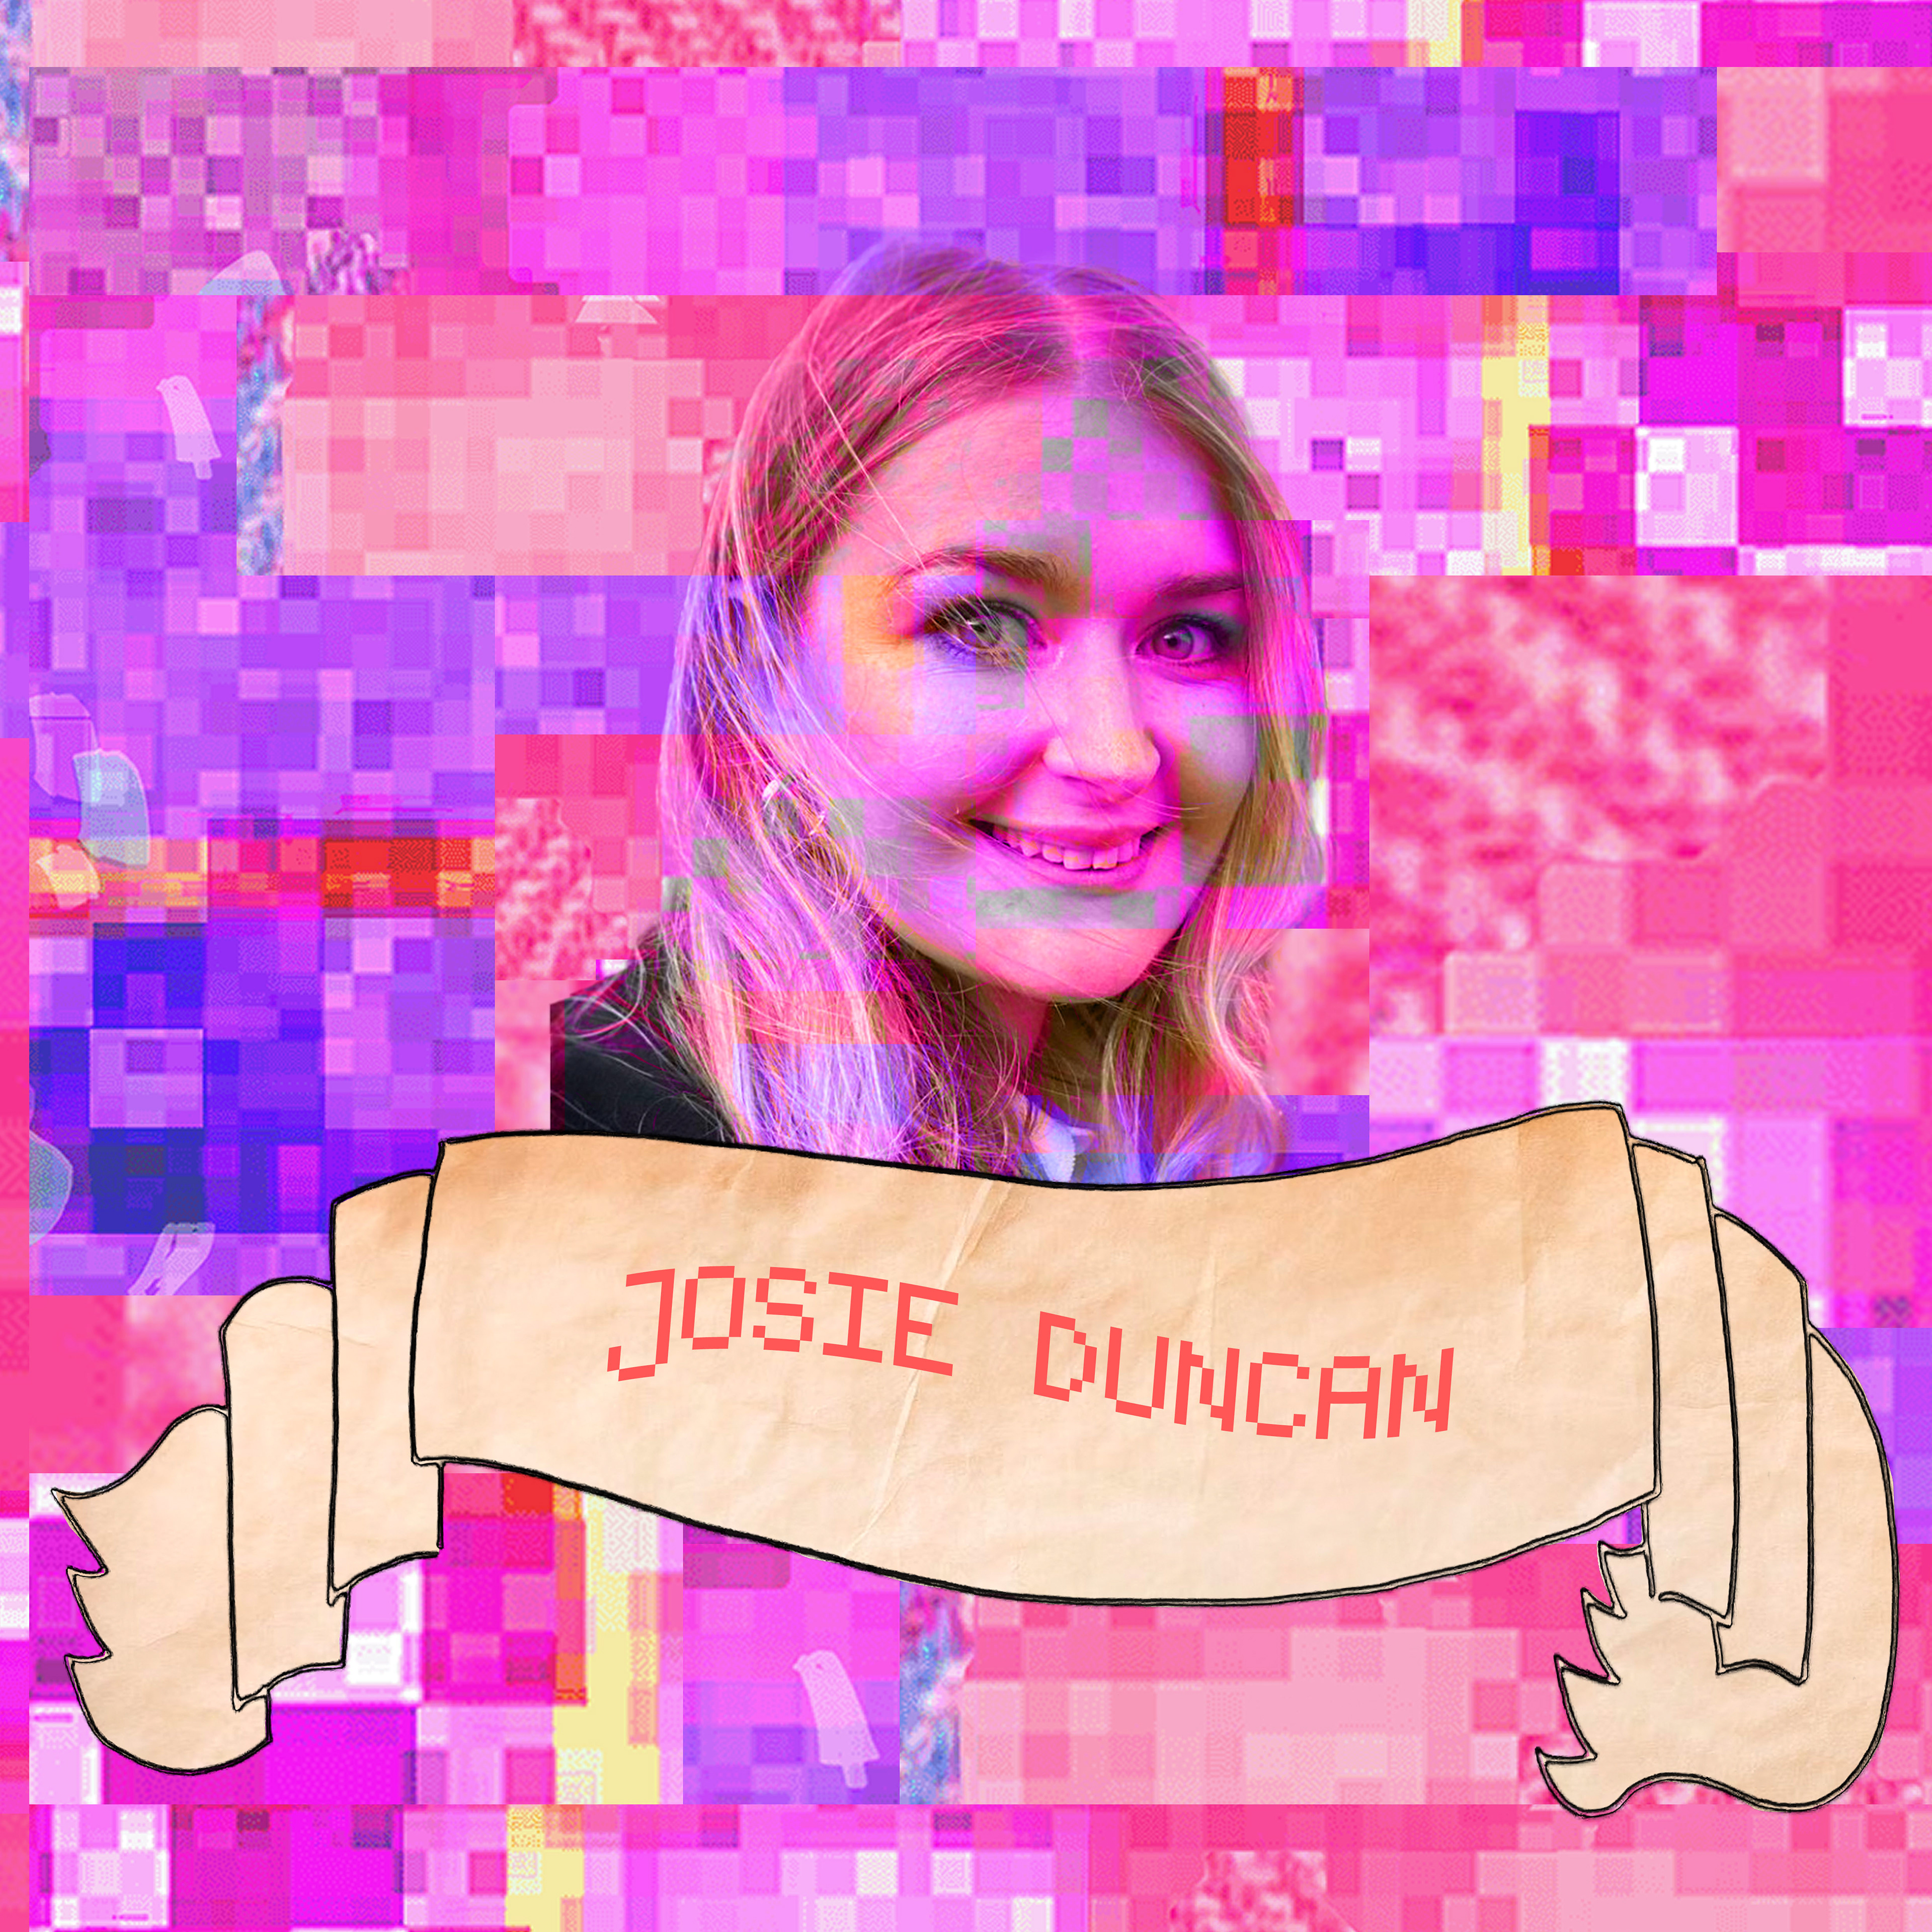 JOSIE DUNCAN